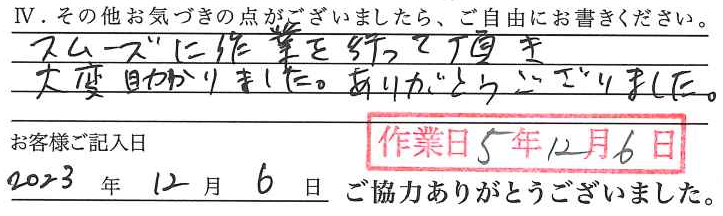 Ⅳ．その他お気づきの点がございましたら、ご自由にお書きください。
スムーズに作業を行って頂き
大変助かりました。ありがとうございました。
お客様ご記入日
作業日5年12月6日
2023年12月6日
ご協力ありがとうございました。